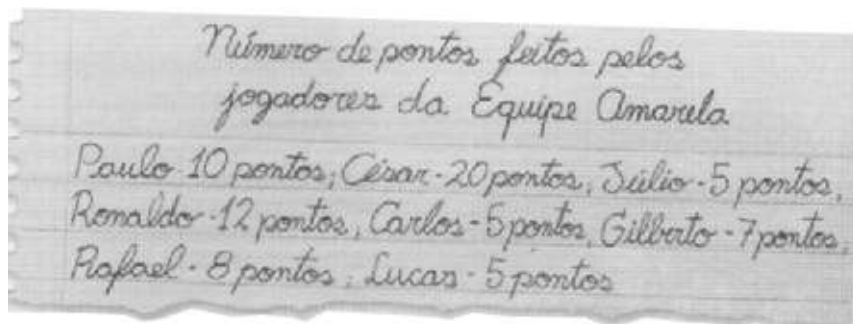 Número de pontos feitos pelos
jogadores da Equipe Amarela
Paulo 10 pontos; César - 20 pontos; Júlio - 5 pontos,
Ronaldo - 12 pontos, Carlos - 5 pontos, Gilberto - 7 pontos,
Rafael - 8 pontos; Lucas - 5 pontos